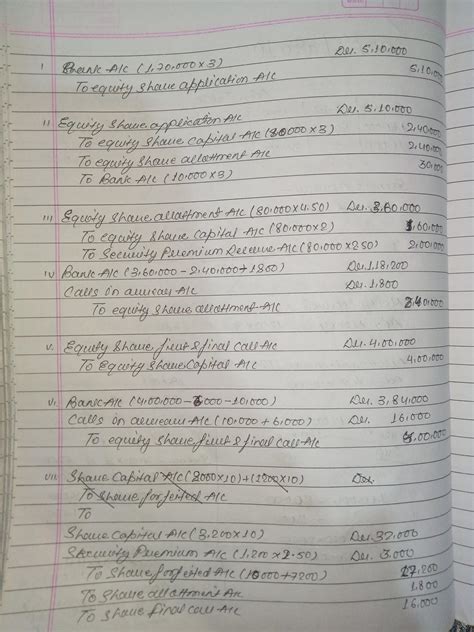 i Bank A/c (1,70,000×3) Dr. 5,10,000
To equity Share application A/c 5,10,000
ii Equity Share application A/c Dr. 5,10,000
To equity Share capital A/c (80000×3) 2,40,000
To equity Share allotment A/c 2,40,000
To Bank A/c (10,000×3) 30,000
iii Equity Share allotment A/c (80,000×4.50) Dr. 3,60,000
To equity Share Capital A/c (80,000×2) 1,60,000
To Security Premium Reserve A/c (80,000×2.50) 2,00,000
iv Bank A/c (3,60,000 - 2,40,000 + 1800) Dr. 1,18,200
Calls in arrear A/c Dr. 1,800
To equity share allotment A/c
v. Equity Share first & final Call A/c Dr. 4,00,000
To Equity Share Capital A/c 4,00,000
vi. Bank A/c (4,00,000 - 6000 - 10,000) Dr. 3,84,000
Calls in arrear A/c (10,000 + 6,000) Dr. 16,000
To equity Share first & final call A/c 4,00,000
vii Share Capital A/c (2000×10)+(1200×10) Dr.
To Share forfeited A/c
To
Share Capital A/c (3,200×10) Dr. 32,000
Security Premium A/c (1,200×2.50) Dr. 3,000
To Share forfeited A/c (10000+7200) 17,200
To Share allotment A/c 1,800
To Share final call A/c 16,000